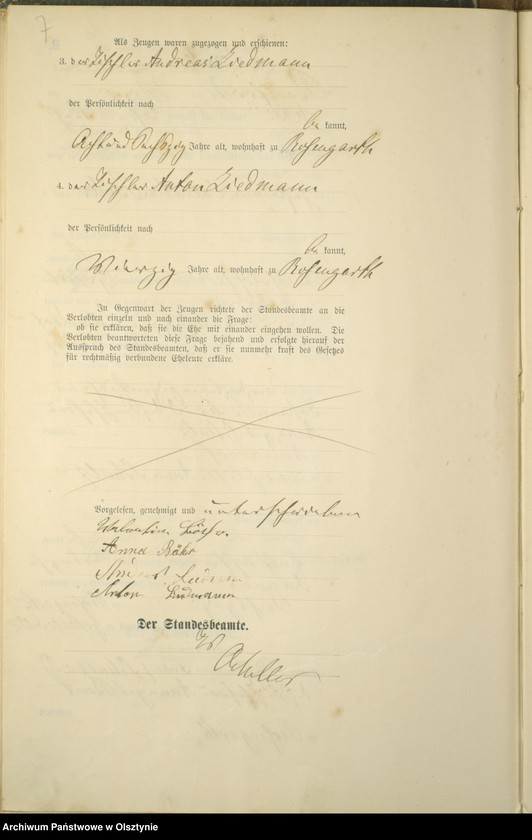 7
Als Zeugen waren zugezogen und erschienen:
3. der Tischler Andreas Liedmann
der Persönlichkeit nach
be kannt,
Acht und Sechszig Jahre alt, wohnhaft zu Rosengarth
4. der Tischler Anton Liedmann
der Persönlichkeit nach
be kannt,
Vierzig Jahre alt, wohnhaft zu Rosengarth
In Gegenwart der Zeugen richtete der Standesbeamte an die
Verlobten einzeln und nach einander die Frage:
ob sie erklären, daß sie die Ehe mit einander eingehen wollen. Die
Verlobten beantworteten diese Frage bejahend und erfolgte hierauf der
Ausspruch des Standesbeamten, daß er sie nunmehr kraft des Gesetzes
für rechtmäßig verbundene Eheleute erkläre.
Vorgelesen, genehmigt und unterschrieben
Valentin
Anna
Anton Liedmann
Der Standesbeamte.
Archiwum Państwowe w Olsztynie